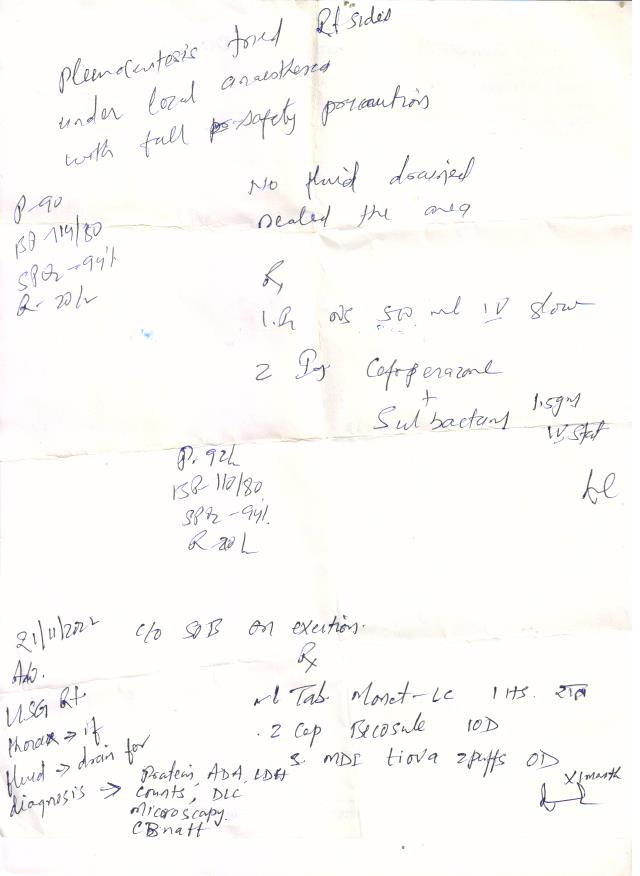 Pleurocentesis tried Rt sides
under local anaesthesia
with full safety precaution
No fluid drained
sealed the area
P-90
BP-114/80
SPO2-94%
R-20/
Rx
1. NS 500 ml IV slow
2 Inj Cefoperazone
+
Sulbactam 1.5gm
IV stat
P-92/
BP-110/80
SPO2-94%
R-20/
21/11/2022 c/o SOB on exertion.
Adv.
USG Rt.
thorax → if
fluid → drain for
diagnosis → Protein, ADA, LDH
Counts, DLC
Microscopy.
CBnatt
Rx
1 Tab. Monet-LC 1 HS.
2 Cap Becosule 1OD
3. MDI tiova 2puffs OD
x1month